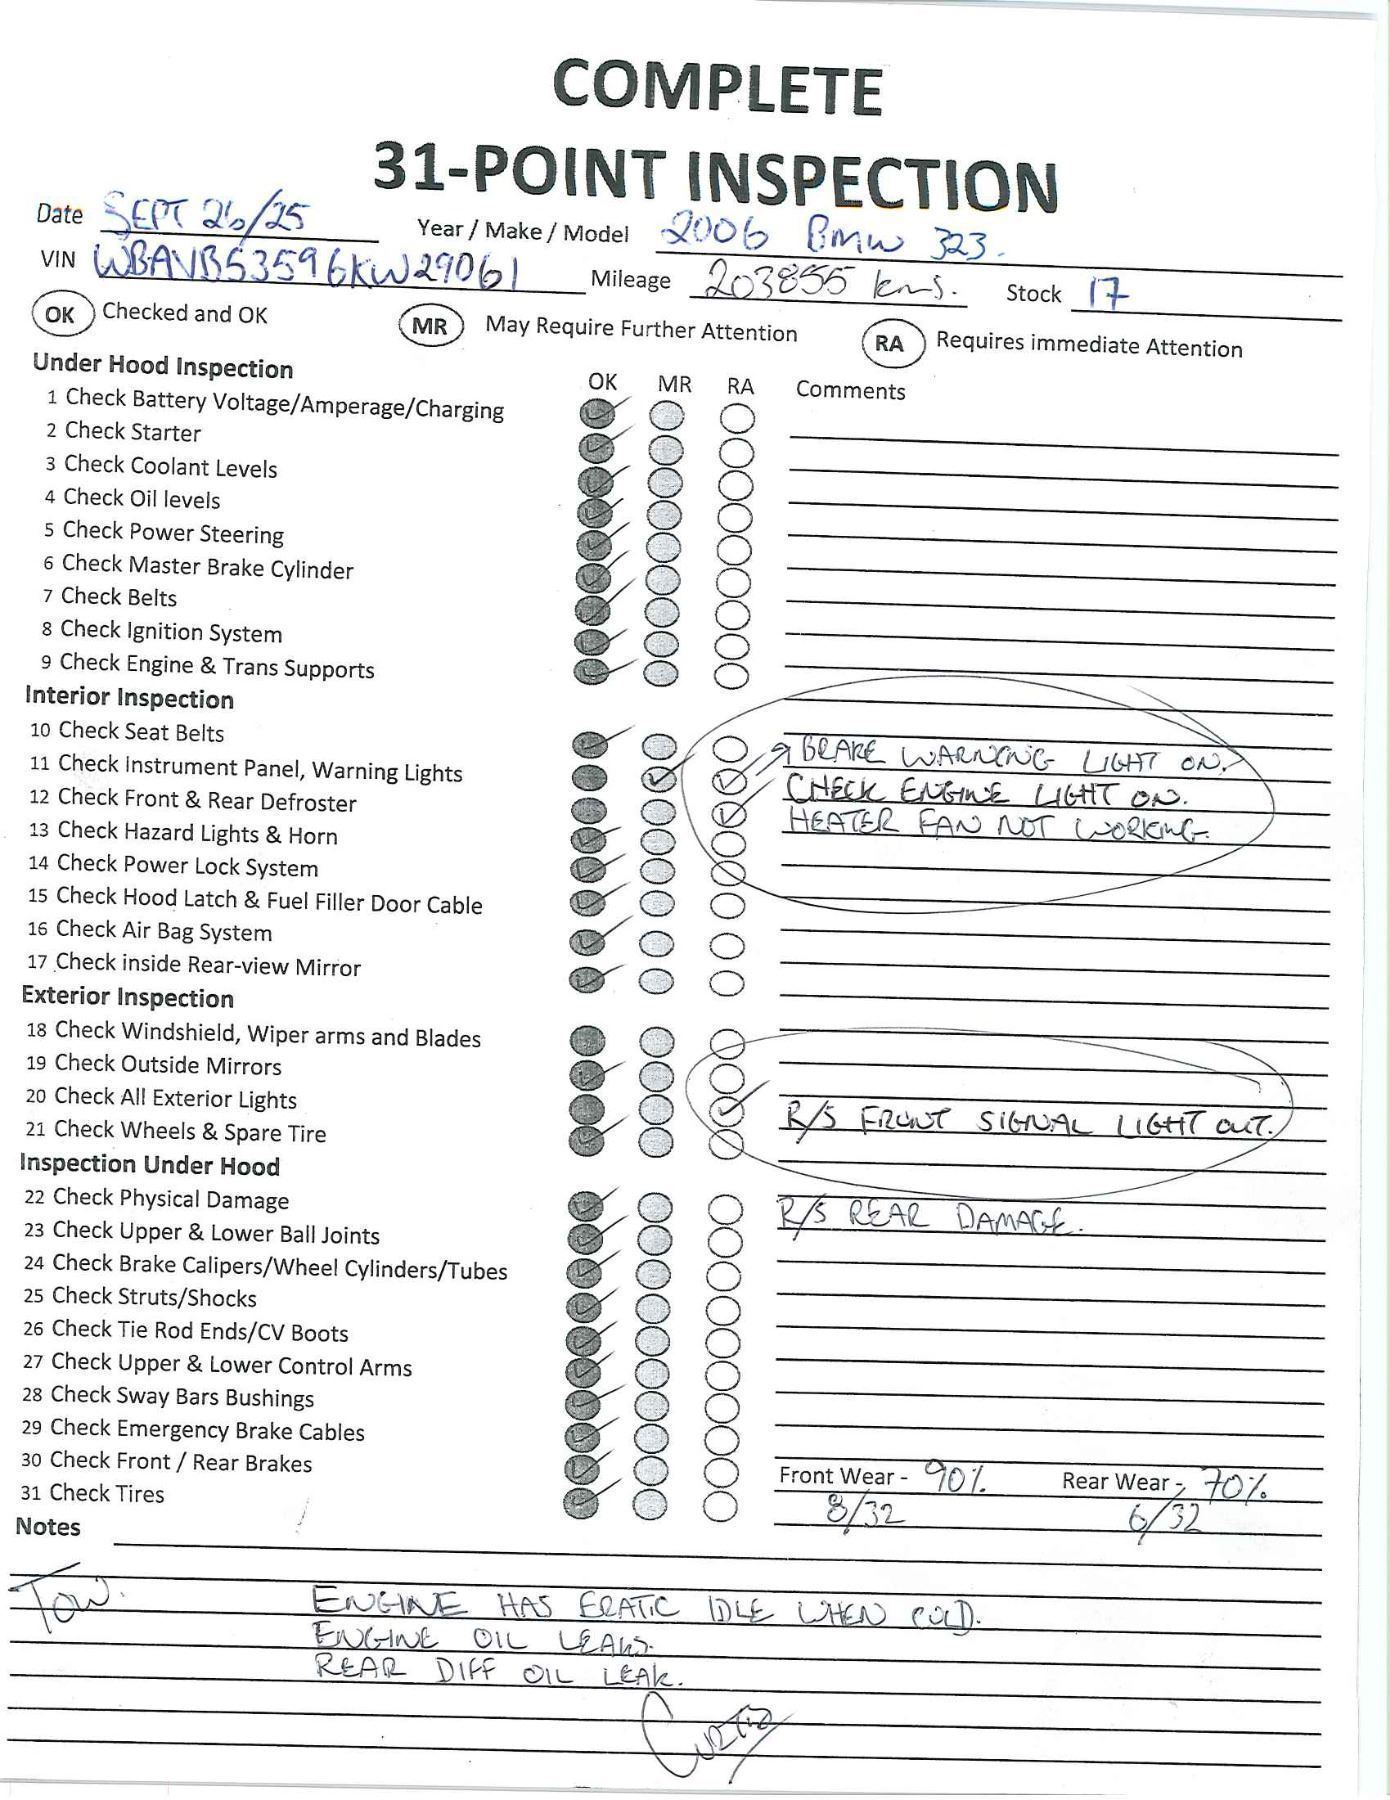 COMPLETE
31-POINT INSPECTION
Date SEPT 26/25 Year / Make / Model 2006 BMW 323.
VIN WBAVB53596KW29061 Mileage 203855 kms. Stock 17
OK Checked and OK MR May Require Further Attention RA Requires immediate Attention
Under Hood Inspection OK MR RA Comments
1 Check Battery Voltage/Amperage/Charging
2 Check Starter
3 Check Coolant Levels
4 Check Oil levels
5 Check Power Steering
6 Check Master Brake Cylinder
7 Check Belts
8 Check Ignition System
9 Check Engine & Trans Supports
Interior Inspection
10 Check Seat Belts
11 Check instrument Panel, Warning Lights BRAKE WARNING LIGHT ON.
CHECK ENGINE LIGHT ON.
12 Check Front & Rear Defroster HEATER FAN NOT WORKING.
13 Check Hazard Lights & Horn
14 Check Power Lock System
15 Check Hood Latch & Fuel Filler Door Cable
16 Check Air Bag System
17 Check inside Rear-view Mirror
Exterior Inspection
18 Check Windshield, Wiper arms and Blades
19 Check Outside Mirrors
20 Check All Exterior Lights R/S FRONT SIGNAL LIGHT OUT.
21 Check Wheels & Spare Tire
Inspection Under Hood
22 Check Physical Damage R/S REAR DAMAGE.
23 Check Upper & Lower Ball Joints
24 Check Brake Calipers/Wheel Cylinders/Tubes
25 Check Struts/Shocks
26 Check Tie Rod Ends/CV Boots
27 Check Upper & Lower Control Arms
28 Check Sway Bars Bushings
29 Check Emergency Brake Cables
30 Check Front / Rear Brakes Front Wear - 90% Rear Wear - 70%
31 Check Tires 8/32 6/32
Notes
TOW. ENGINE HAS ERATIC IDLE WHEN COLD.
ENGINE OIL LEAKS.
REAR DIFF OIL LEAK.
CURTIS